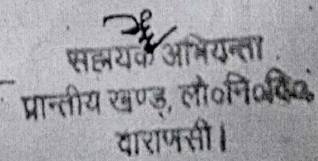 सहायक अभियन्ता
प्रान्तीय खण्ड, लो०नि०वि०
वाराणसी।